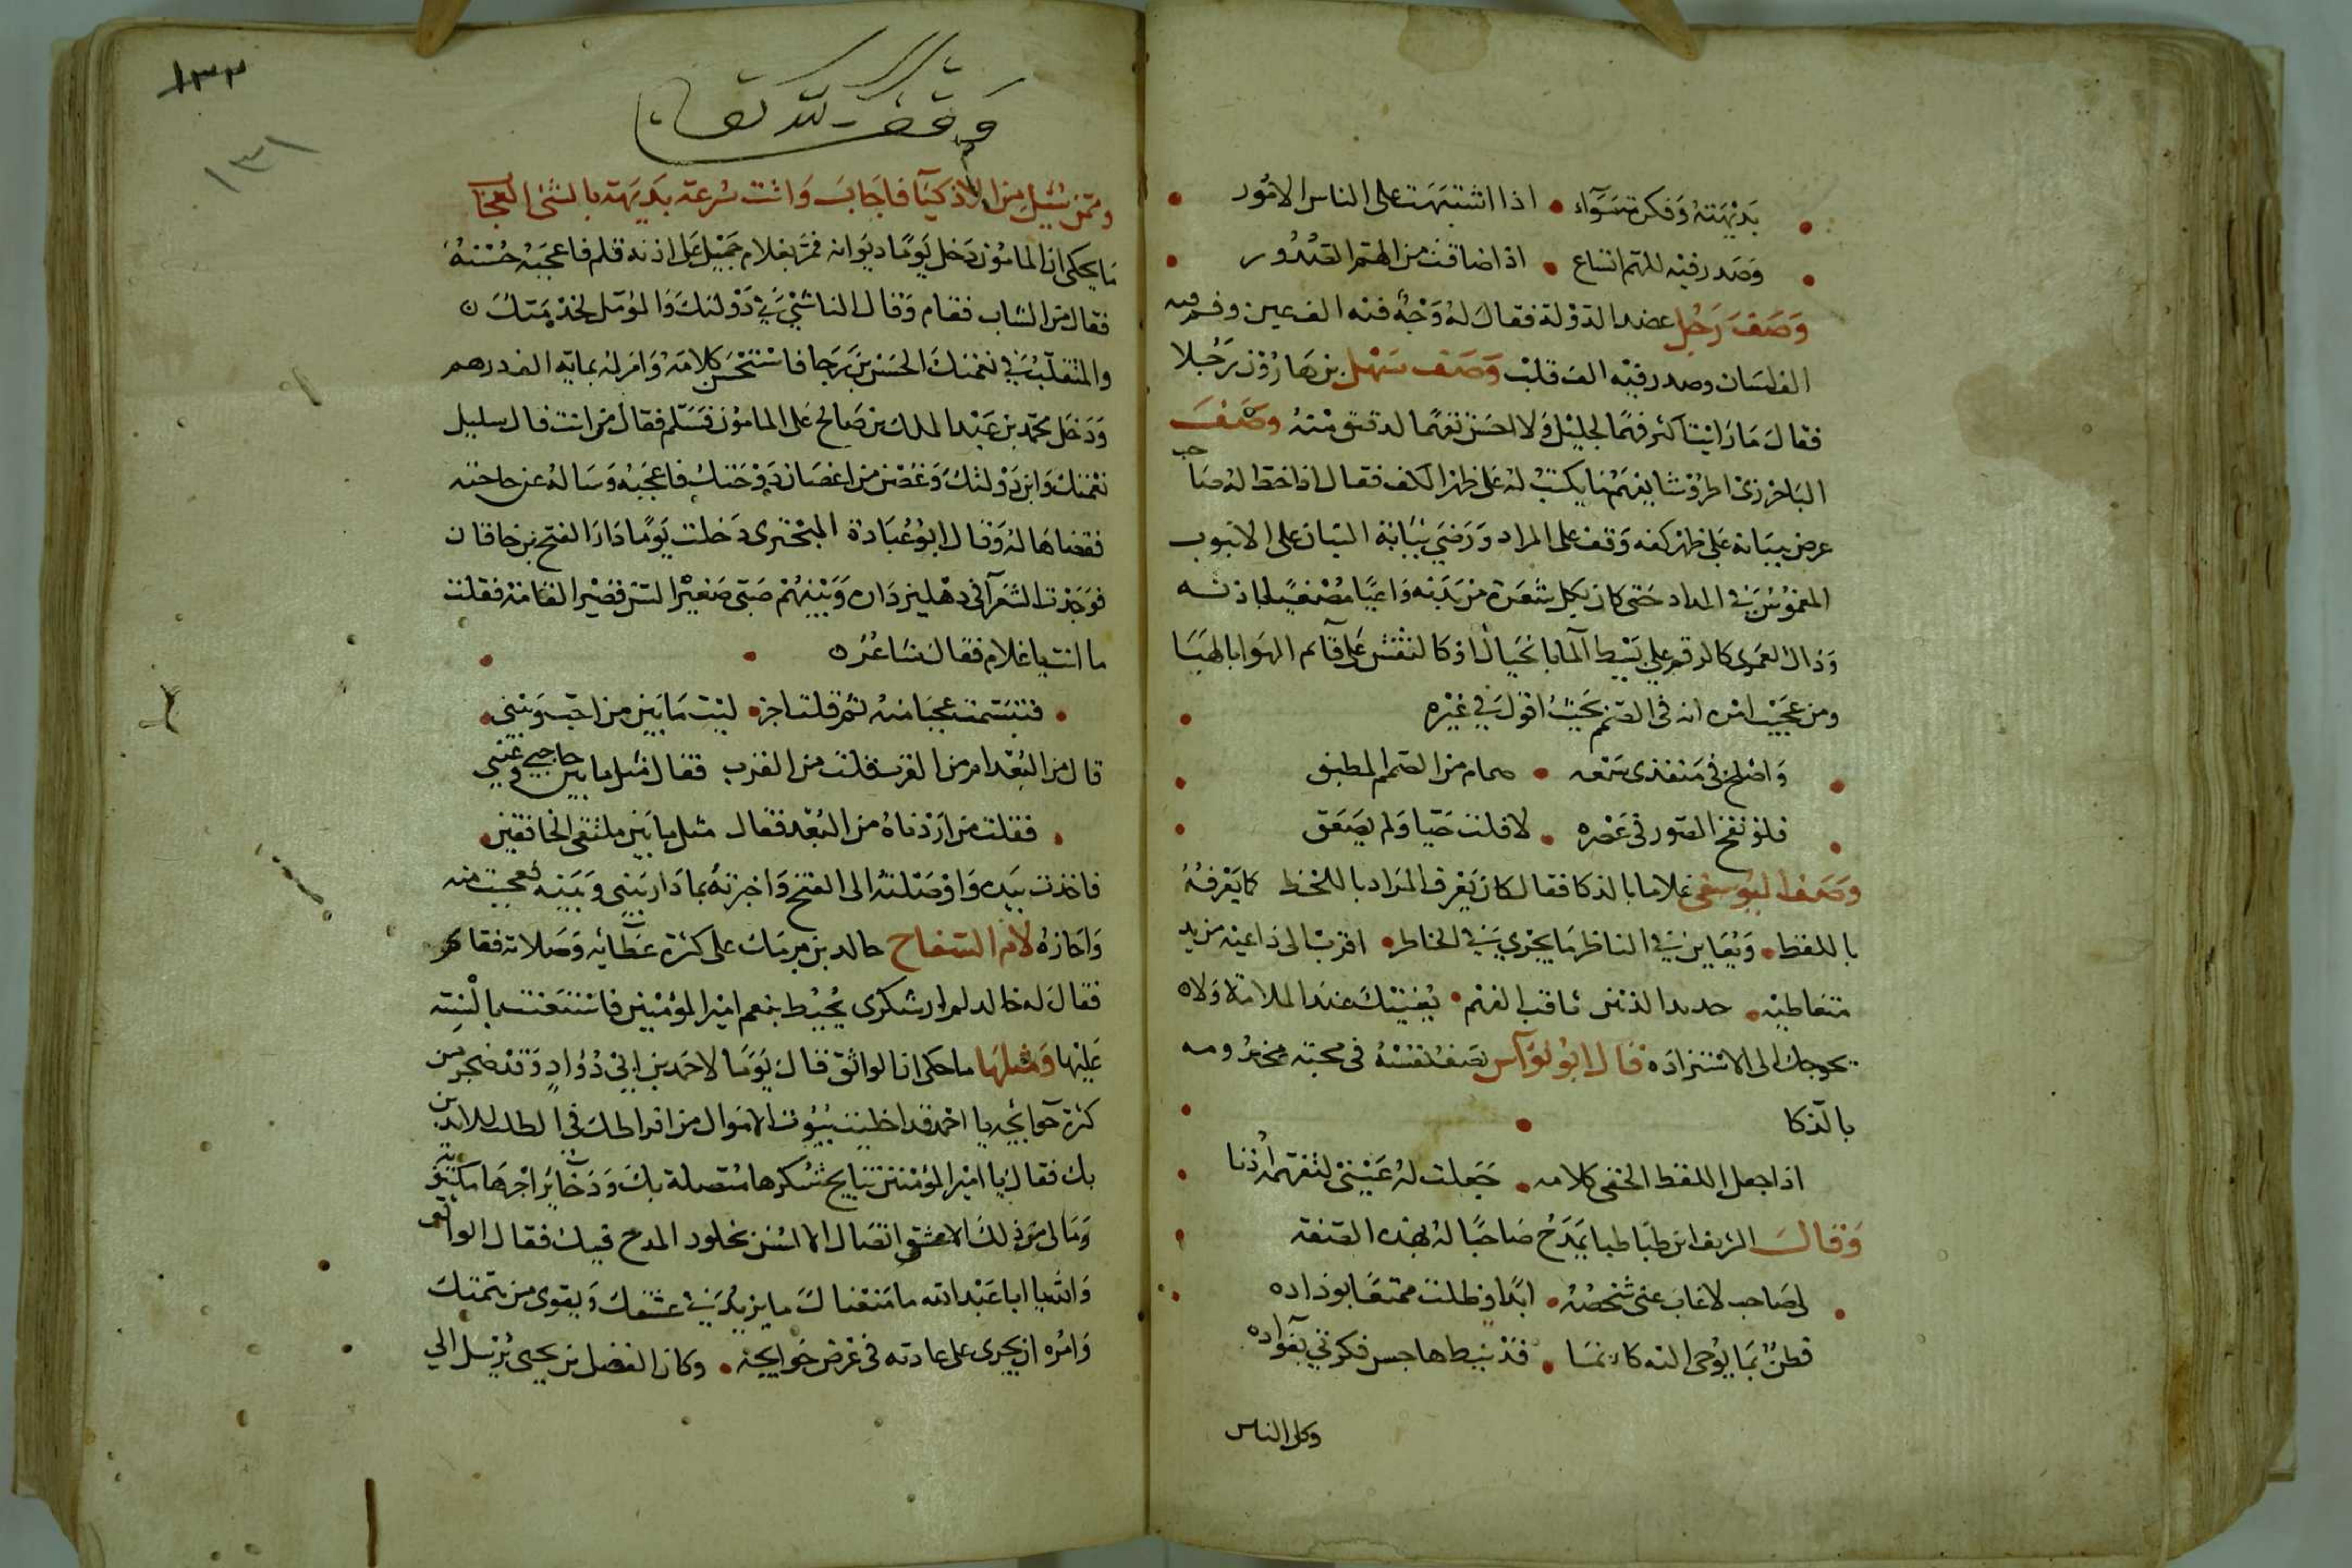 بَديْهَتهُ وَفكرته سَوَآء • اذا اشتبهَت على الناس الامُور
وَصَدر فيْه للهم اتساع • اذا ضاقت من الهمّ الصُدُور
وَصَفَ رَجُل عضد الدَوْلة فقالَ لهُ وَجْهٌ فيْه الف عين وفم فيه
الف لسَان وصدر فيْه الف قلبْ وَصَف سَهْل بن هَارُوْن رَجُلا
فقالَ مَا رَايْت اكثر فهمًا لجليْل وَلا احسَن تفهّما لدقيق منْهُ وصَفَ
الباخرزى اطروْشا يفهَم بما يكتبُ لهُ على ظهر الكف فقال اذا خط لهُ صَاحب
عرض ببيَانه عَلى ظهْر كفه وَقف على المراد وَرَضي بنيَابة البنَان على الانبوب
المغموْس في المداد حَتى كان بكل شعَرة من بَدَنه وَاعيًا مُصْغيًا باذنه
وَذاك لعَمرى كالرقم على بَسيْط المآ بالخيَال اوْ كالنقش عَلى قآئم الهوَا بالهبَا
ومن عجيْب امْره انه فى الصَمَم بحَيْث اقول في غيْره
وَاصْلخ فى مَنفذى سَمْعه • صمام من الصمم المطبق
فلوْ نفخ الصّور فى عَصْره • لافلت حَيّا وَلم يصْعَق
وصَف اليوسفى غلاما بالذكا فقال كان يَعْرف المرَاد باللحْظ كما يَعْرفهُ
باللفظ • وَيُعَاين في الناظر مَا يجْري في الخاطر • اقربْ الى دَاعيْه من يد
متعَاطيْه • حديد الذهْن ثاقب الفهْم • يُغنيْك عنْد الملامة وَلاه
يحوجك الى الاستزادَة قال ابو نوآس يصَف نفسَهُ فى محبته مخدُومه
بالّذكا
اذا جعل اللفظ الخفى كلامه • جَعلت لهُ عَيْنىْ لتفهمهُ اذنا
وَقالَ الشريف ابن طبَاطبا يمَدَحُ صَاحبًا لهُ بهٰذه الصّفة
لى صَاحب لا غابَ عنى شَخْصُهُ • ابدًا وظلت ممتعًا بوداده
فطنٌ بمَا يوُحى اليْه كانمَا • قدْ نيط هاجس فكرتي بفؤاده
وكل الناس
١٣٢
١٣١
وقف لله تعا
وممّن سُئِل من الاذكيآ فاجَابَ وَاتت سُرعة بَديْهته بالشئ العجَاب
مَا يحكى ان المامُوْن دَخل يَومًا ديوَانه فمرّ بغلام جَميْل عَلى اذنه قلم فاعجَبهُ حُسْنهُ
فقال من الشاب فقام وَقال الناشئ في دَوْلتكَ وَالمؤمّل لخدْمَتك
والمُتقلّبُ في نعْمتكَ الحَسَن بن رَجا فاسْتحسَن كلامَهُ وَامَر لهُ بمايه الف درهم
وَدَخل محمّد بن عَبْد الملك بن صَالح عَلى المامُوْن فسَلّم فقال من انت قال سليل
نعْمتك وَابن دَوْلتكَ وَغُصْن من اغصَان دَوْحتكَ فاعجَبهُ وَسَالهُ عن حاجته
فقضاهَا لهُ وَقال ابوُ عُبَادة البحْترى دَخلت يَومًا دَار الفتح بن خاقان
فوَجَدْت الشعَرآ فى دهْليز دَاره وَبَيْنهُم صَبّى صَغيْر السّن قصَيْر القامَة فقلت
ما انت يا غلام فقالَ شَاعرُ
• فتبسّمت عجبًا منهُ ثم قلت اجز • ليْت مَا بَين من احبّ وَبَيْني •
قال من البُعْد ام من القرب قلت من القرب فقال مثل ما بين حاجبي وعيْني
• فقلت من اردْناهُ من البُعْد فقال مثل ما بَين ملتقى الخافقيْن •
فاخذت بيَده وَاوْصَلتهُ الى الفتح وَاخبرتهُ بما دَار بَيْني وَبَيْنه فعجبَ منه
وَاجَازهُ لام السّفاح خالد بن برمك على كثرة عَطائه وَصَلاته فقا
فقالَ له خالد لم ار شكرى يُحيْط بنعم اميْر المؤمنين فاسْتعَنت بالسنة
عَليْها وَمثلهَا ما حكى ان الواثق قالَ يَوْمًا لاحمد بن ابى دُوَادٍ وَقدْ ضجر من
كثرة حَوآئجه يا احْمد قد اخليْت بُيُوت الاموَال من افراطك في الطلب للائذين
بك فقال يا اميْر المؤمنيْن نتَايج شكرها مُتصلة بكَ وَذخَآئر اجْرهَا مكتُوبة
وَمَا لى من ذلكَ الا عشق اتصَال الالسُن بخلود المدح فيكَ فقال الواثق
وَالله يا ابا عَبْد الله ما منعْناكَ ما يزيْد في عشقكَ وَيقوى من همّتك
وَامَره ان يجرى على عادته فى عَرْض حَوَايجه • وكان الفضل بن يحيى يُرْسل الى